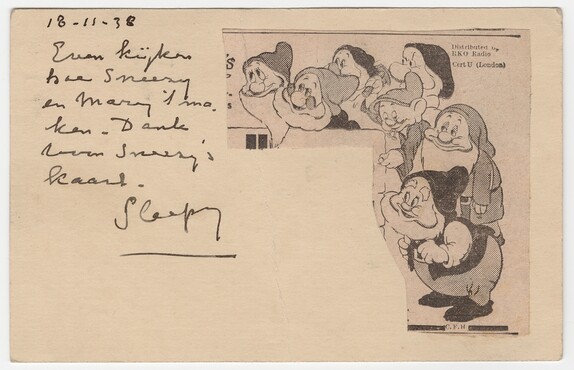 18-11-38
Even kijken
hoe Sneezy
en Mary 't ma-
ken. Dank
voor Sneezy's
kaart.
Sleepy
Distributed by
RKO Radio
Cert U (London)
C.F.H